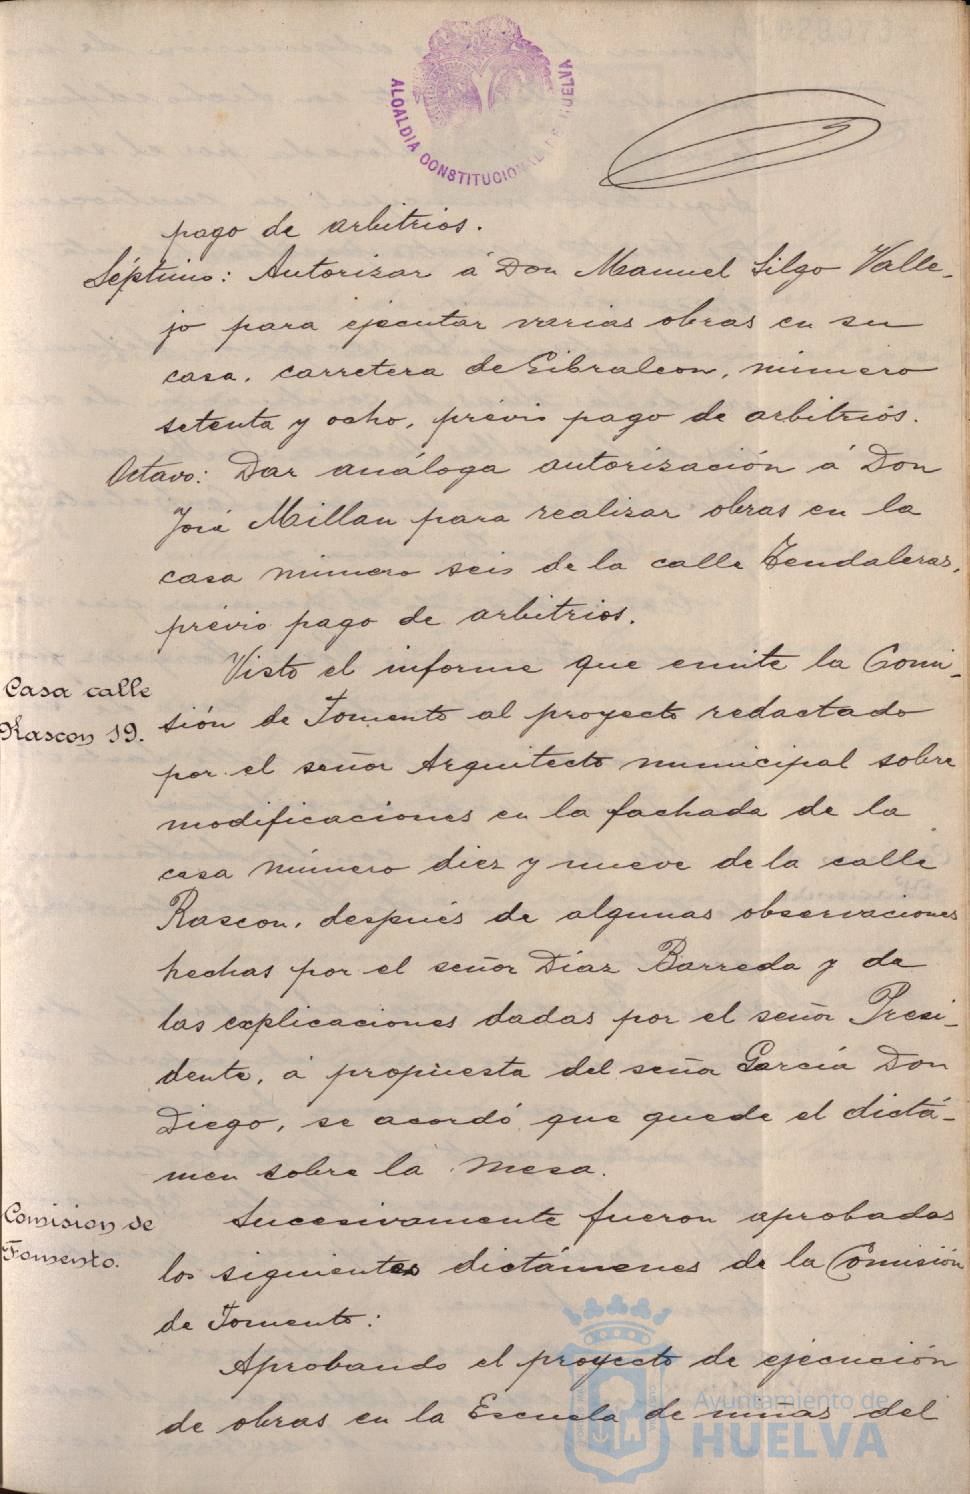 ALCALDIA CONSTITUCIONAL DE HUELVA
pago de arbitrios.
Séptimo: Autorizar á Don Manuel Silgo Valle-
jo para ejecutar varias obras en su
casa, carretera de Gibraleon, número
setenta y ocho, prévio pago de arbitrios.
Octavo: Dar análoga autorización á Don
José Millan para realizar obras en la
casa número seis de la calle Tendaleras,
prévio pago de arbitrios.
Casa calle
Rascon 19.
Visto el informe que emite la Comi-
sión de Fomento al proyecto redactado
por el señor Arquitecto municipal sobre
modificaciones en la fachada de la
casa número diez y nueve de la calle
Rascon, después de algunas observaciones
hechas por el señor Díaz Barreda y de
las explicaciones dadas por el señor Presi-
dente, á propuesta del señor García Don
Diego, se acordó que quede el dictá-
men sobre la mesa.
Comision de
Fomento.
Sucesivamente fueron aprobados
los siguientes dictámenes de la Comisión
de Fomento:
Aprobando el proyecto de ejecución
de obras en la Escuela de niñas del
Ayuntamiento de
HUELVA